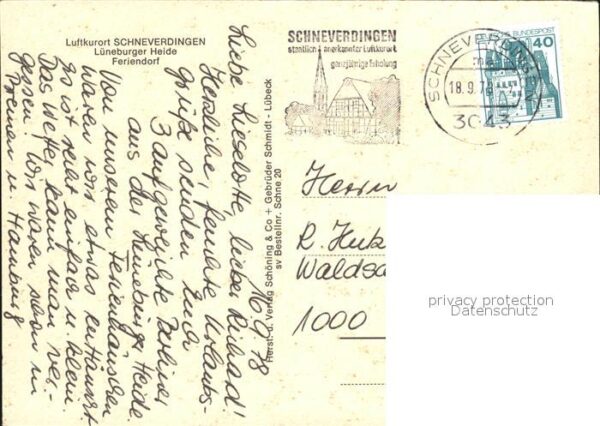 Luftkurort SCHNEVERDINGEN
Lüneburger Heide
Feriendorf
SCHNEVERDINGEN
staatlich anerkannter Luftkurort
ganzjährige Erholung
SCHNEVERDINGEN
18.9.78
3043
DEUTSCHE BUNDESPOST
40
16.9.78
Liebe Lieselotte, lieber Richard!
Herzliche, feuchte Urlaubs-
grüße senden Euch
3 aufgeweichte Berliner
aus der Lüneburger Heide.
Von unserem Ferienhäuschen
waren wir etwas enttäuscht
es ist sehr einfach u. klein.
Das Wetter kann man ver-
gessen! Wir waren schon in
Bremen u. Hamburg
Herst. u. Verlag Schöning & Co + Gebrüder Schmidt - Lübeck
sv Bestellnr. Schne 20
Herrn
R.
1000
privacy protection
Datenschutz